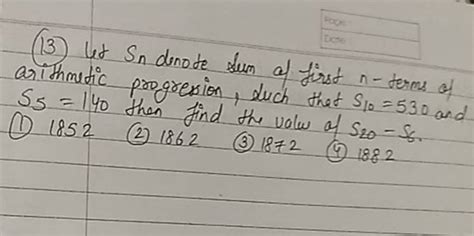 Page:
Date:
(13) Let Sn denote sum of first n-terms of
arithmetic progression, such that S10 = 530 and
S5 = 140 then find the value of S20 - S6.
① 1852 ② 1862 ③ 1872 ④ 1882